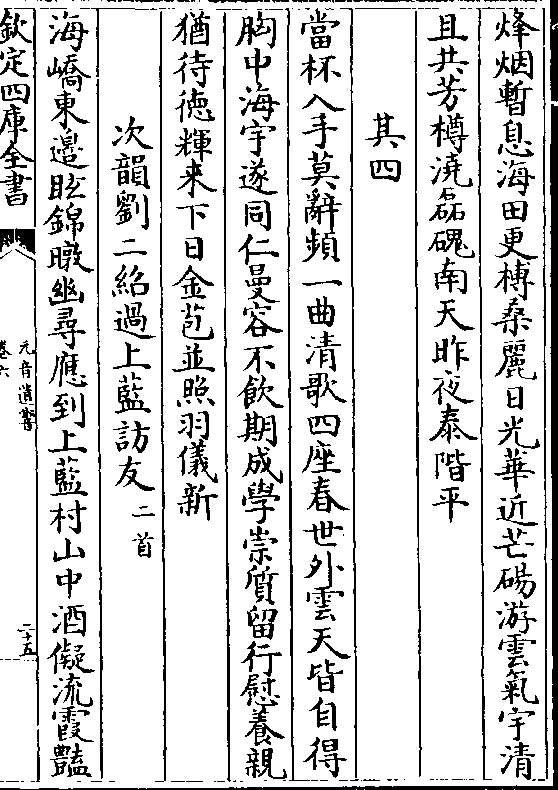 烽烟暫息海田更榑桑麗日光華近芒碭游雲氣宇清
且共芳樽澆磊磈南天昨夜泰階平
其四
當杯入手莫辭頻一曲清歌四座春世外雲天皆自得
胸中海宇遂同仁曼容不飲期成學崇質留行慰養親
猶待徳輝來下日金苞並照羽儀新
次韻劉二紹過上藍訪友二首
海嶠東邉眩錦暾幽尋應到上藍村山中酒儗流霞豔
欽定四庫全書
元音遺響
卷六
二十五